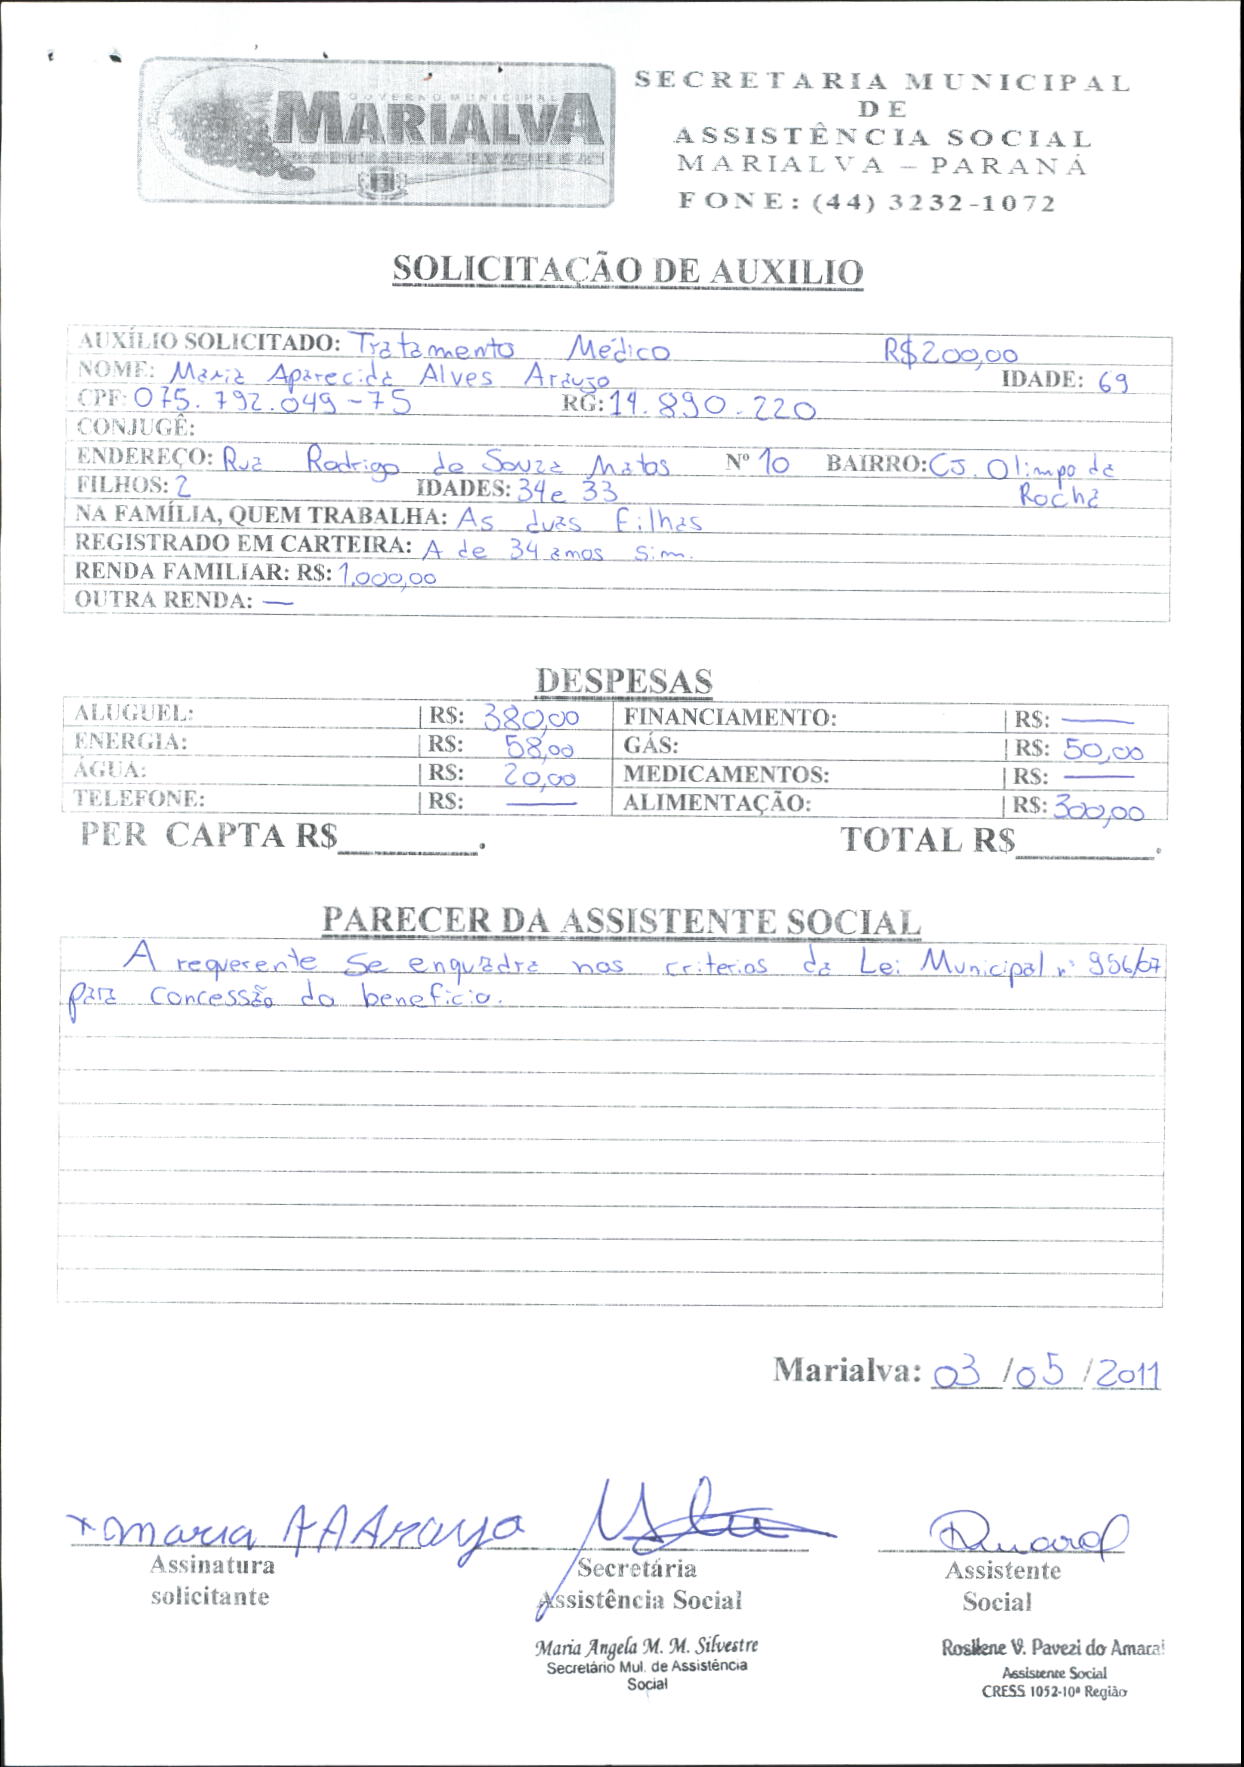 GOVERNO MUNICIPAL
MARIALVA
SECRETARIA MUNICIPAL
DE
ASSISTÊNCIA SOCIAL
MARIALVA – PARANÁ
FONE: (44) 3232-1072
SOLICITAÇÃO DE AUXILIO
AUXÍLIO SOLICITADO: Tratamento Médico R$200,00
NOME: Maria Aparecida Alves Araujo IDADE: 69
CPF: 075.792.049-75 RG: 14.890.220
CONJUGÊ:
ENDEREÇO: Rua Rodrigo de Souza Matos Nº 10 BAIRRO: CJ. Olimpo da
Rocha
FILHOS: 2 IDADES: 34 e 33
NA FAMÍLIA, QUEM TRABALHA: As duas filhas
REGISTRADO EM CARTEIRA: A de 34 amos sim.
RENDA FAMILIAR: R$: 1.000,00
OUTRA RENDA: —
DESPESAS
ALUGUEL: R$: 380,00 FINANCIAMENTO: R$: —
ENERGIA: R$: 58,00 GÁS: R$: 50,00
ÁGUA: R$: 20,00 MEDICAMENTOS: R$: —
TELEFONE: R$: — ALIMENTAÇÃO: R$: 300,00
PER CAPTA R$________. TOTAL R$________.
PARECER DA ASSISTENTE SOCIAL
A requerente se enquadra nos criterios da Lei Municipal nº 956/07
para concessão do beneficio.
Marialva: 03/05/2011
x maria A A Araujo
Assinatura Secretária Assistente
solicitante Assistência Social Social
Maria Angela M. M. Silvestre
Secretário Mul. de Assistência
Social
Rosilene V. Pavezi do Amaral
Assistente Social
CRESS 1052-10ª Região